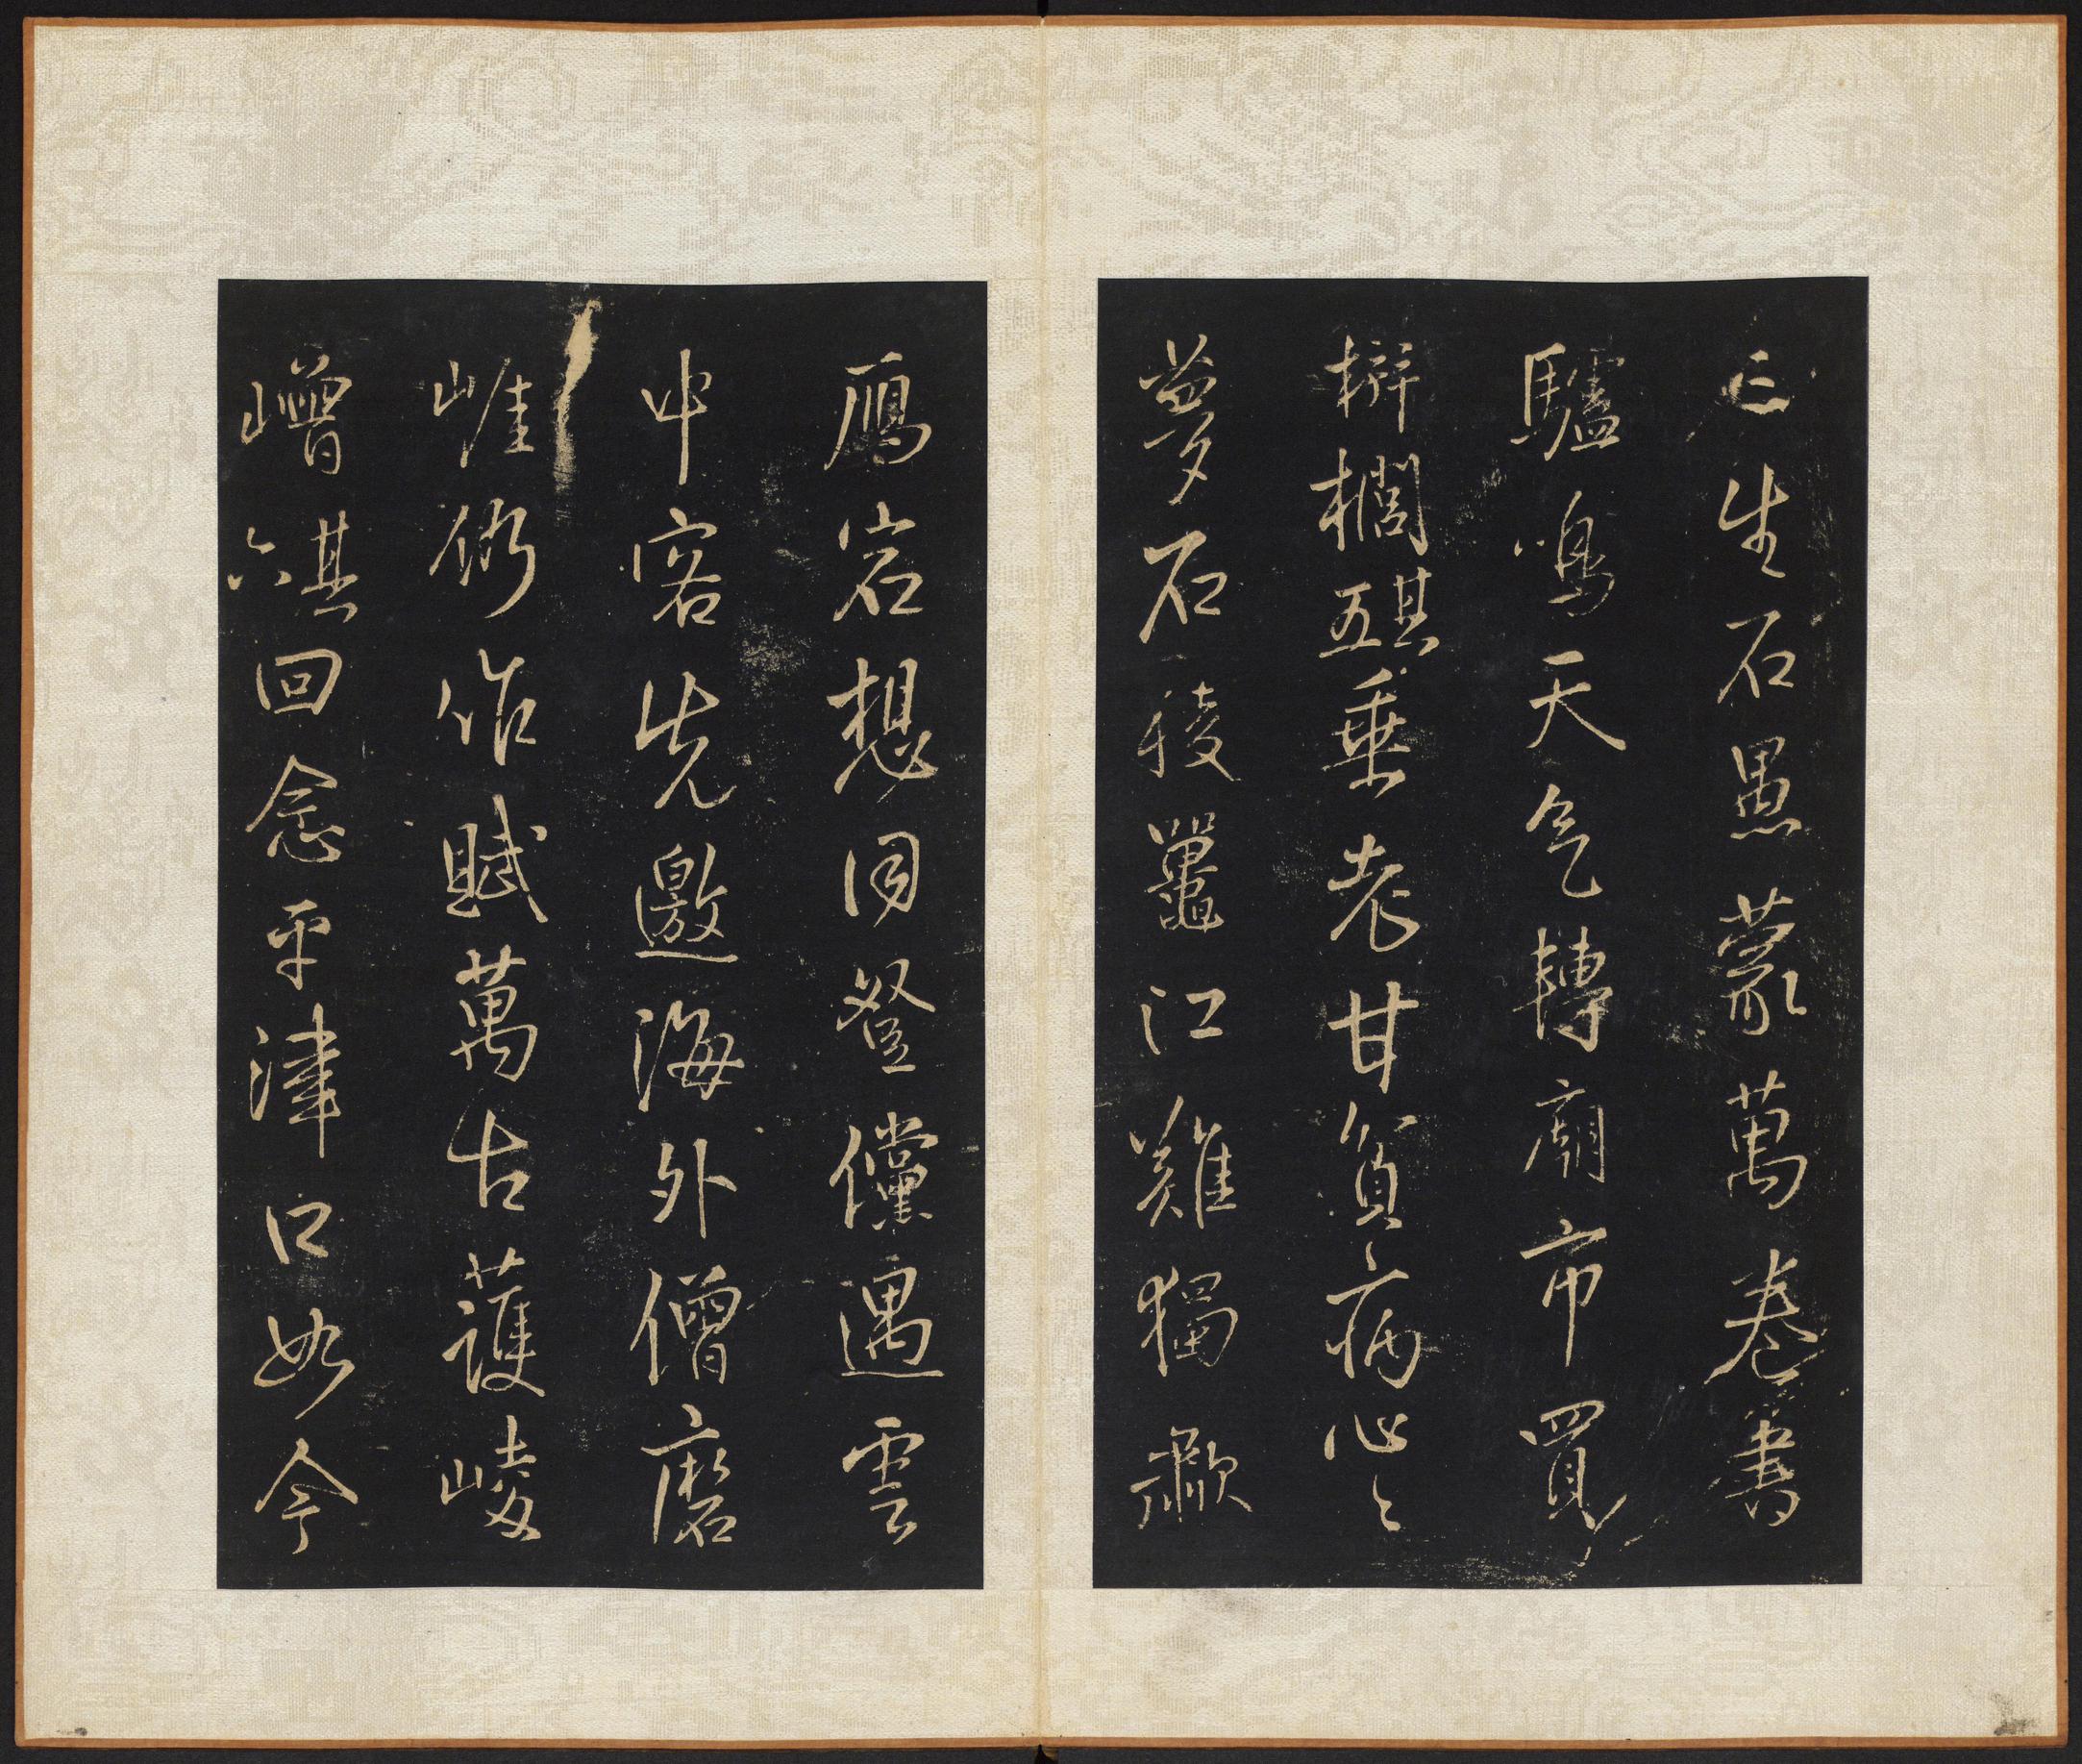 三生石愚蒙萬卷書
驢鳴天氣轉廟市買
栟櫚五湖垂老甘貧病心心
夢石稜鼉江難獨漱
鴈宕想同登儻遇雲
中客先邀海外僧磨
崖仍作賦萬古護崚
嶒 六棋回念平津口如今